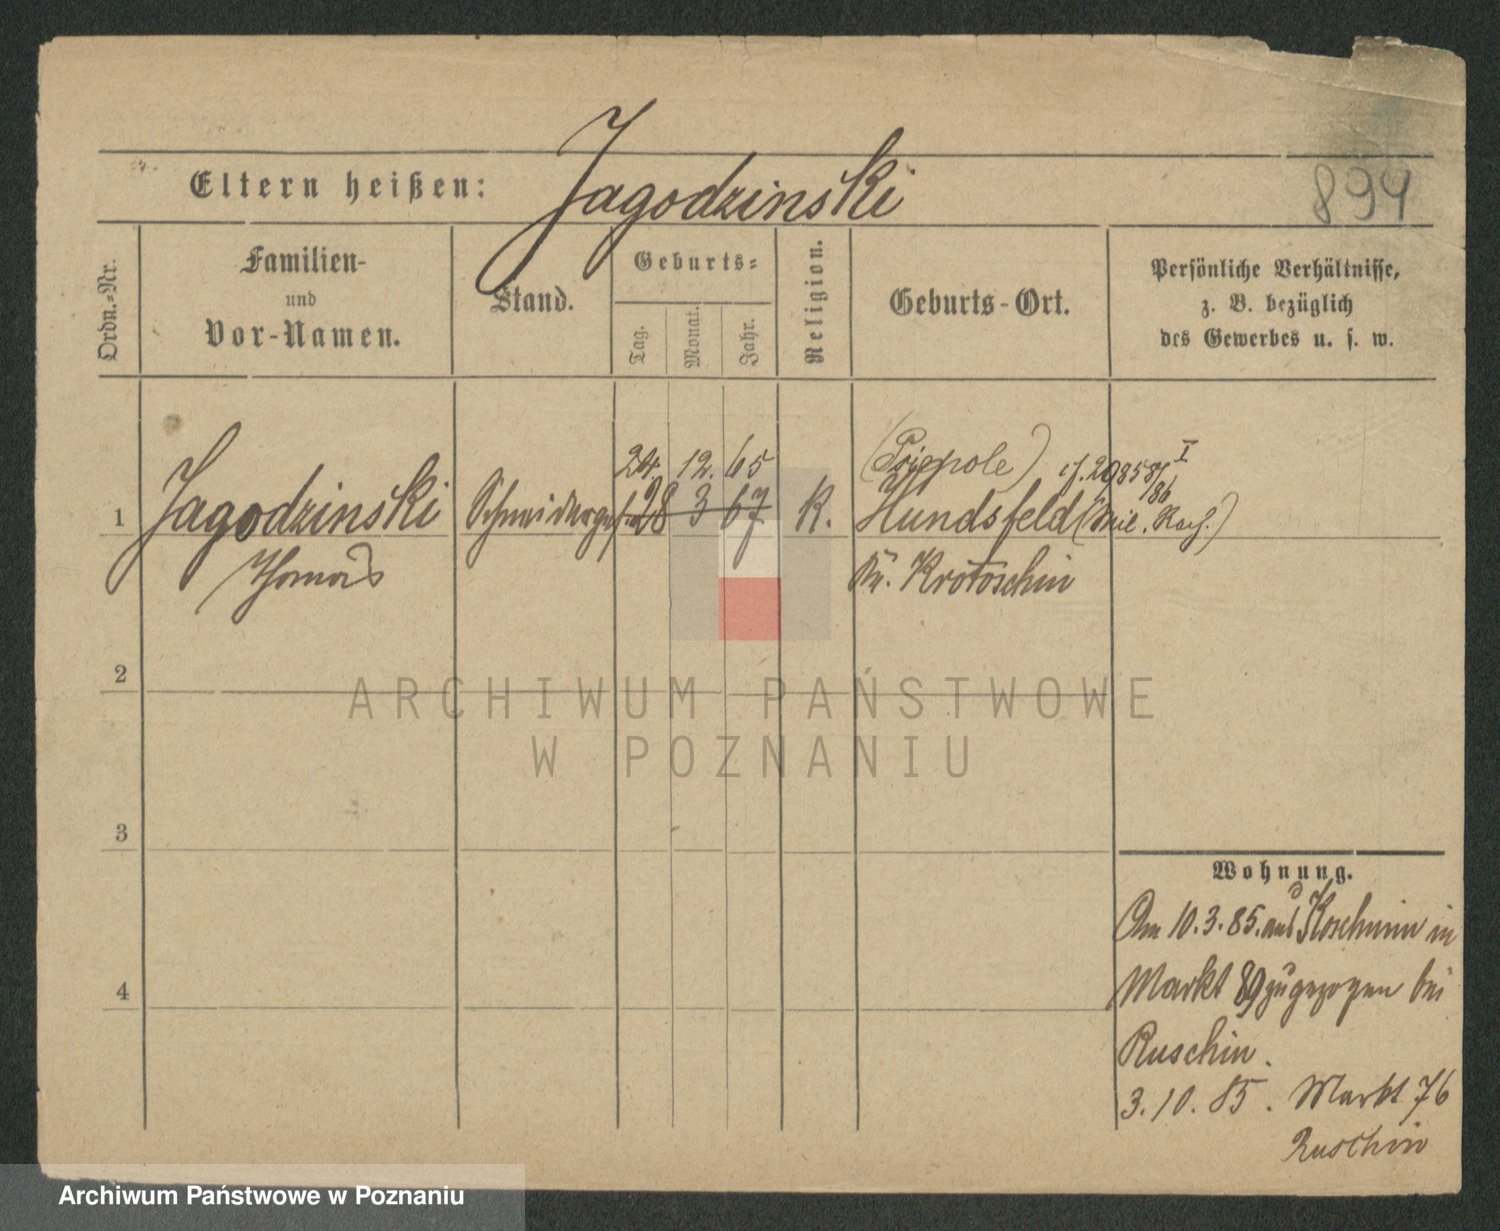 Jagodzinski
Eltern heißen:
894
Ordn.-Nr.
Familien-
und
Vor-Namen.
Stand.
Geburts-
Tag.
Monat.
Jahr.
Religion.
Geburts-Ort.
Persönliche Verhältnisse,
z. B. bezüglich
des Gewerbes u. s. w.
24. 12. 65
(Psiepole) cf. 20858/86 I
1 Jagodzinski Schneiderges. 28 3 67 K. Hundsfeld (Mil. )
Thomas Kr. Krotoschin
2
ARCHIWUM PAŃSTWOWE
W POZNANIU
3
Wohnung.
Am 10.3.85. aus Koschmin in
4
Markt 89 zugezogen bei
Ruschin.
3.10.85. Markt 76
Ruschin
Archiwum Państwowe w Poznaniu